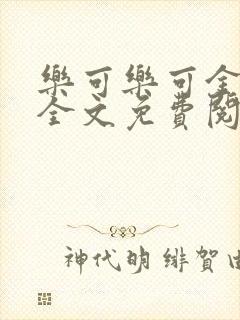 樂可樂可全
全文免費閱
神代明 緋賀由